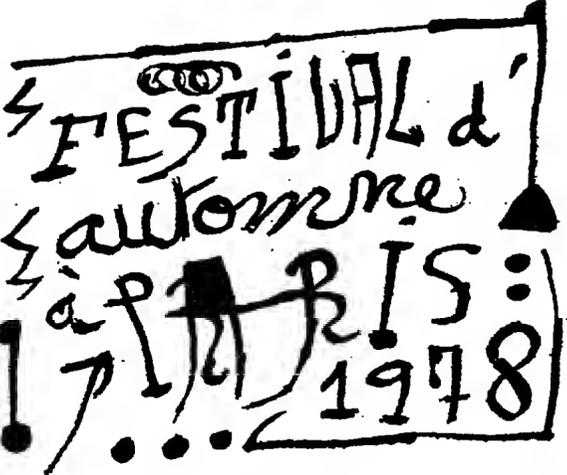 FESTIVAL d'
automne
à PARIS:
1978